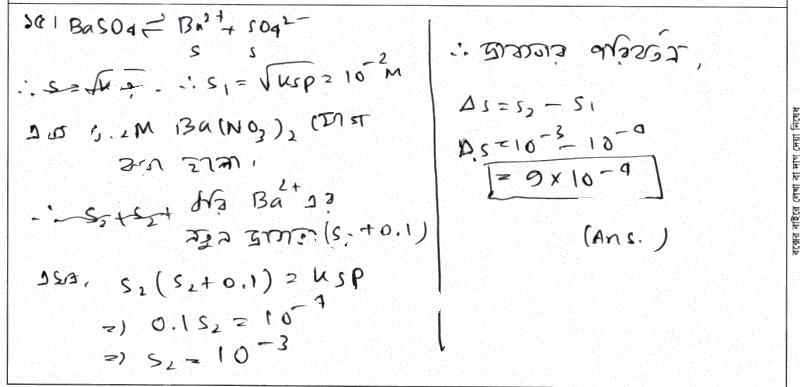 ১৫। BaSO4 ⇌ Ba²⁺ + SO4²⁻
S S
∴ S₁ = √Ksp = 10⁻² M
Ba(NO₃)₂ যোগ
করা হলো।
ধরি Ba²⁺ এর
নতুন দ্রাব্যতা (S₂ + 0.1)
এখন, S₂ (S₂ + 0.1) = Ksp
⇒ 0.1 S₂ = 10⁻⁴
⇒ S₂ = 10⁻³
∴ দ্রাব্যতার পরিবর্তন,
ΔS = S₂ − S₁
ΔS = 10⁻³ − 10⁻⁴
= 9 × 10⁻⁴
(Ans.)
বক্সের বাইরে লেখা বা দাগ দেয়া নিষেধ